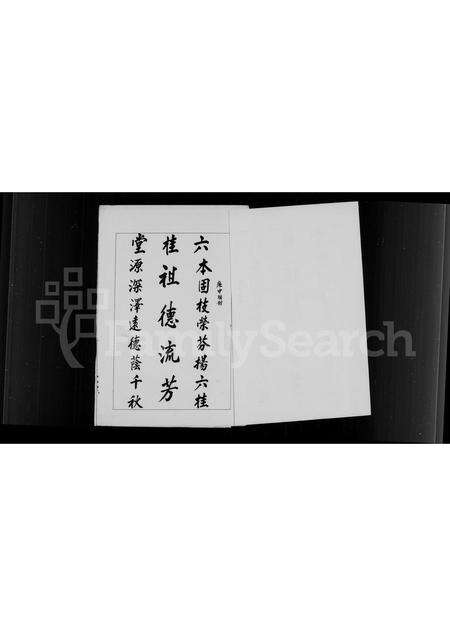 六桂堂
本固枝榮芬揚六桂
祖德流芳
源深澤遠德蔭千秋
FamilySearch